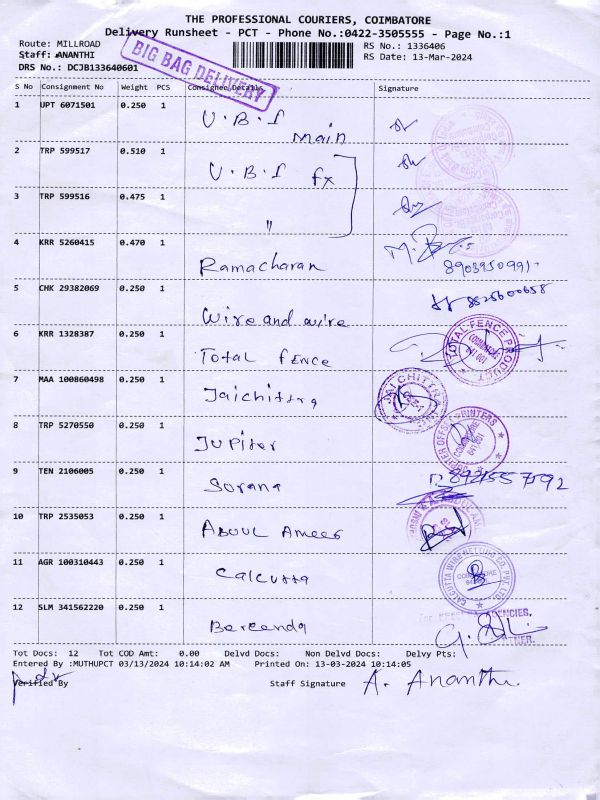 THE PROFESSIONAL COURIERS, COIMBATORE
Delivery Runsheet - PCT - Phone No.:0422-3505555 - Page No.:1
Route: MILLROAD RS No.: 1336406
Staff: ANANTHI RS Date: 13-Mar-2024
DRS No.: DCJB133640601
BIG BAG DELIVERY
S No Consignment No Weight PCS Consignee Details Signature
1 UPT 6071501 0.250 1 U.B.I main
2 TRP 599517 0.510 1 U.B.I fx
3 TRP 599516 0.475 1 "
4 KRR 5260415 0.470 1 Ramacharan
5 CHK 29382069 0.250 1 Wire and wire
6 KRR 1328387 0.250 1 Total fence TOTAL FENCE PRODUCT
7 MAA 100860498 0.250 1 Jaichittra JAICHITTRA
8 TRP 5270550 0.250 1 Jupiter
9 TEN 2106005 0.250 1 Sorana
10 TRP 2535053 0.250 1 ABOUL Amees
11 AGR 100310443 0.250 1 Calcutta CALCUTTA WIRE NETTING CO. PVT. LTD. COIMBATORE
12 SLM 341562220 0.250 1
Tot Docs: 12 Tot COD Amt: 0.00 Delvd Docs: Non Delvd Docs: Delvy Pts:
Entered By :MUTHUPCT 03/13/2024 10:14:02 AM Printed On: 13-03-2024 10:14:05
Verified By Staff Signature A. Ananthi.